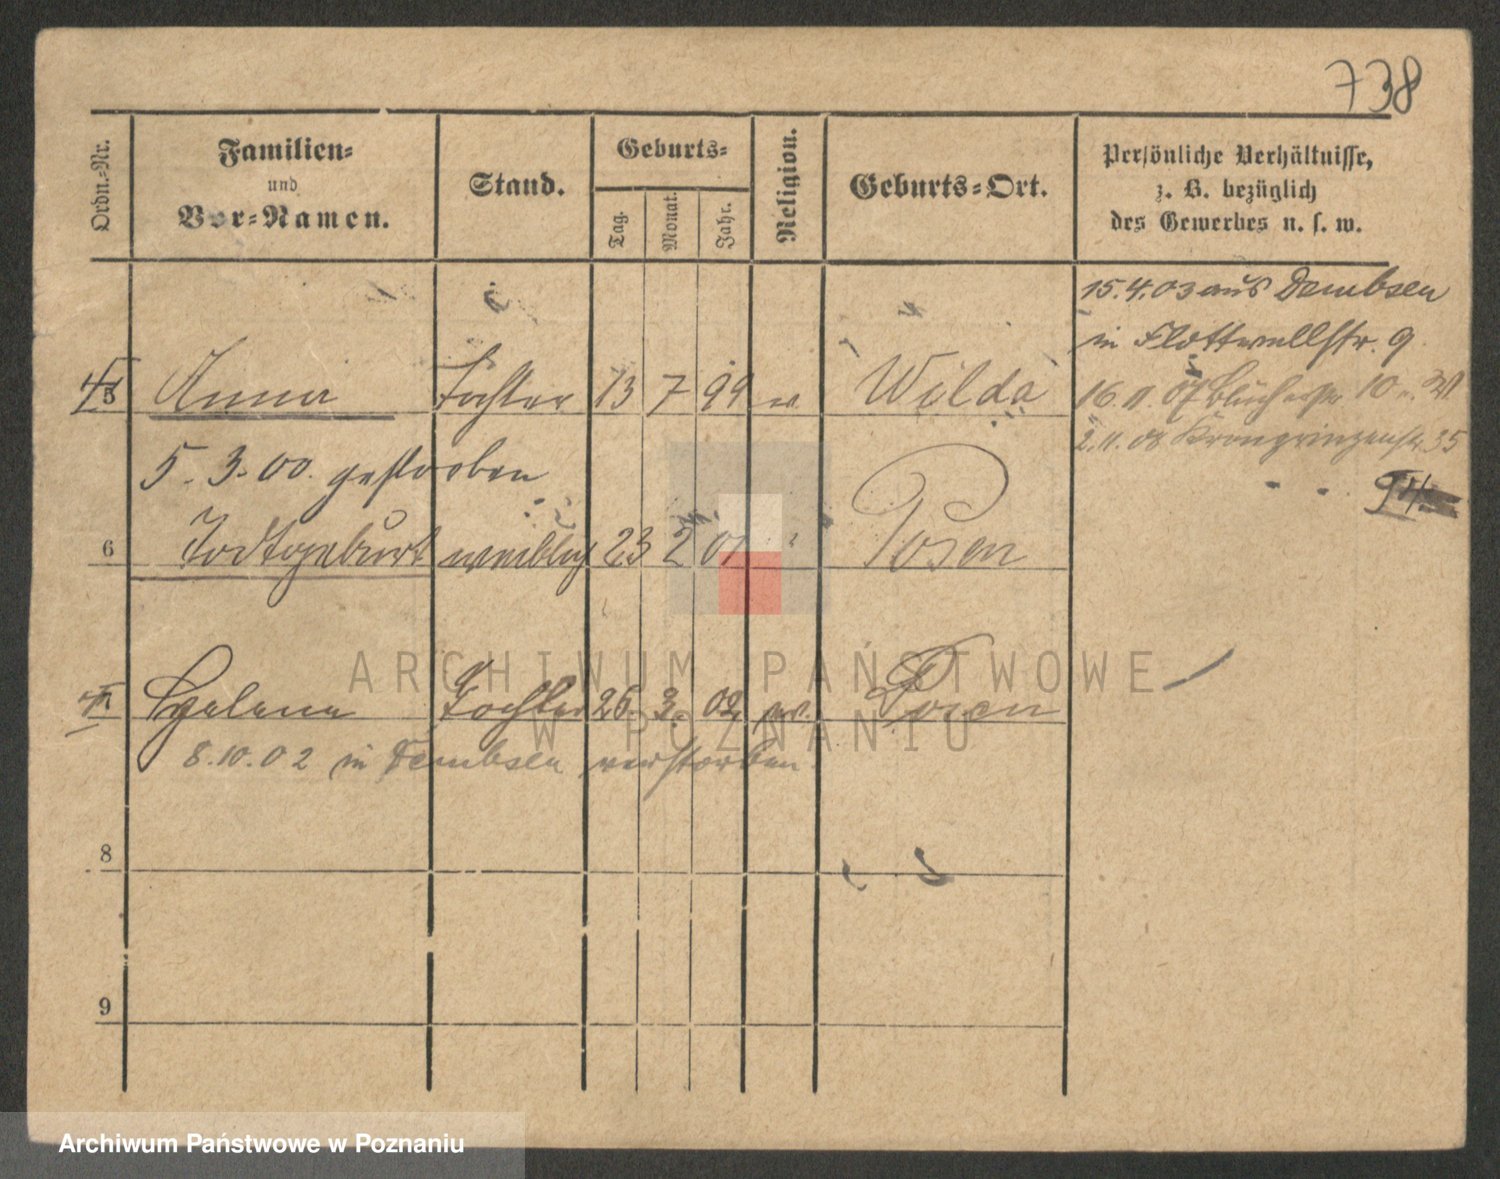 738
Ordn.-Nr.
Familien-
und
Vor-Namen.
Stand.
Geburts-
Tag.
Monat.
Jahr.
Religion.
Geburts-Ort.
Persönliche Verhältnisse,
z. B. bezüglich
des Gewerbes u. s. w.
15.4.03 aus Dembsen
in Flottwellstr. 9
5 Anna Tochter 13 7 99 Wilda
16.11.07 10
2.11.08 Kronprinzenstr. 35
5.3.00. gestorben
6 Todtgeburt weiblich 23 2 01 Posen
ARCHIWUM PAŃSTWOWE
W POZNANIU
Helena Tochter 26. 3. 02 Posen
8.10.02 in Dembsen verstorben.
8
9
Archiwum Państwowe w Poznaniu